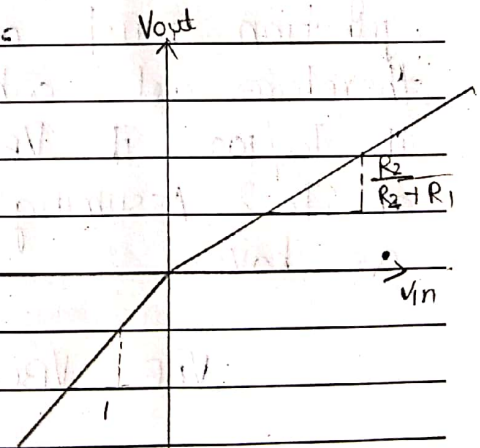 Vout
R2
R2 + R1
Vin
1